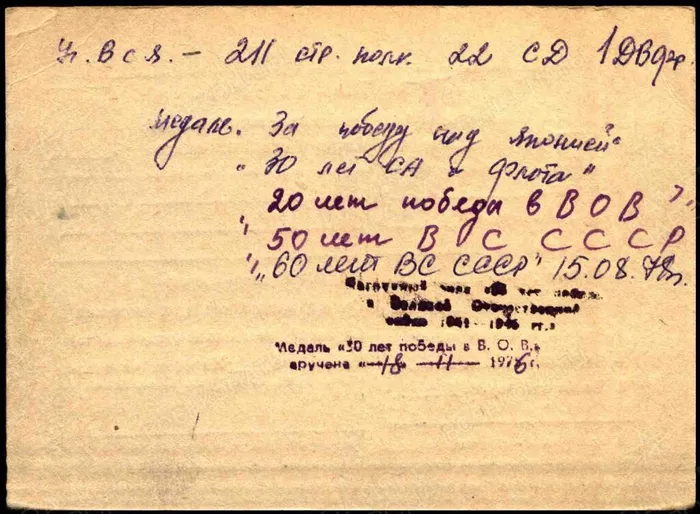 У. В с Я. - 211 стр. полк. 22 СД 1 ДВфр.
медаль. За победу над Японией"
" 30 лет СА и Флота"
20 лет победа в В О В"
" 50 лет В С С С С Р
" "60 лет ВС СССР" 15.08.78г.
лет победы
в Великой Отечественной
войне 1941-1945 гг.»
Медаль «30 лет победы в В. О. В.»
вручена «18» 11 1976г.